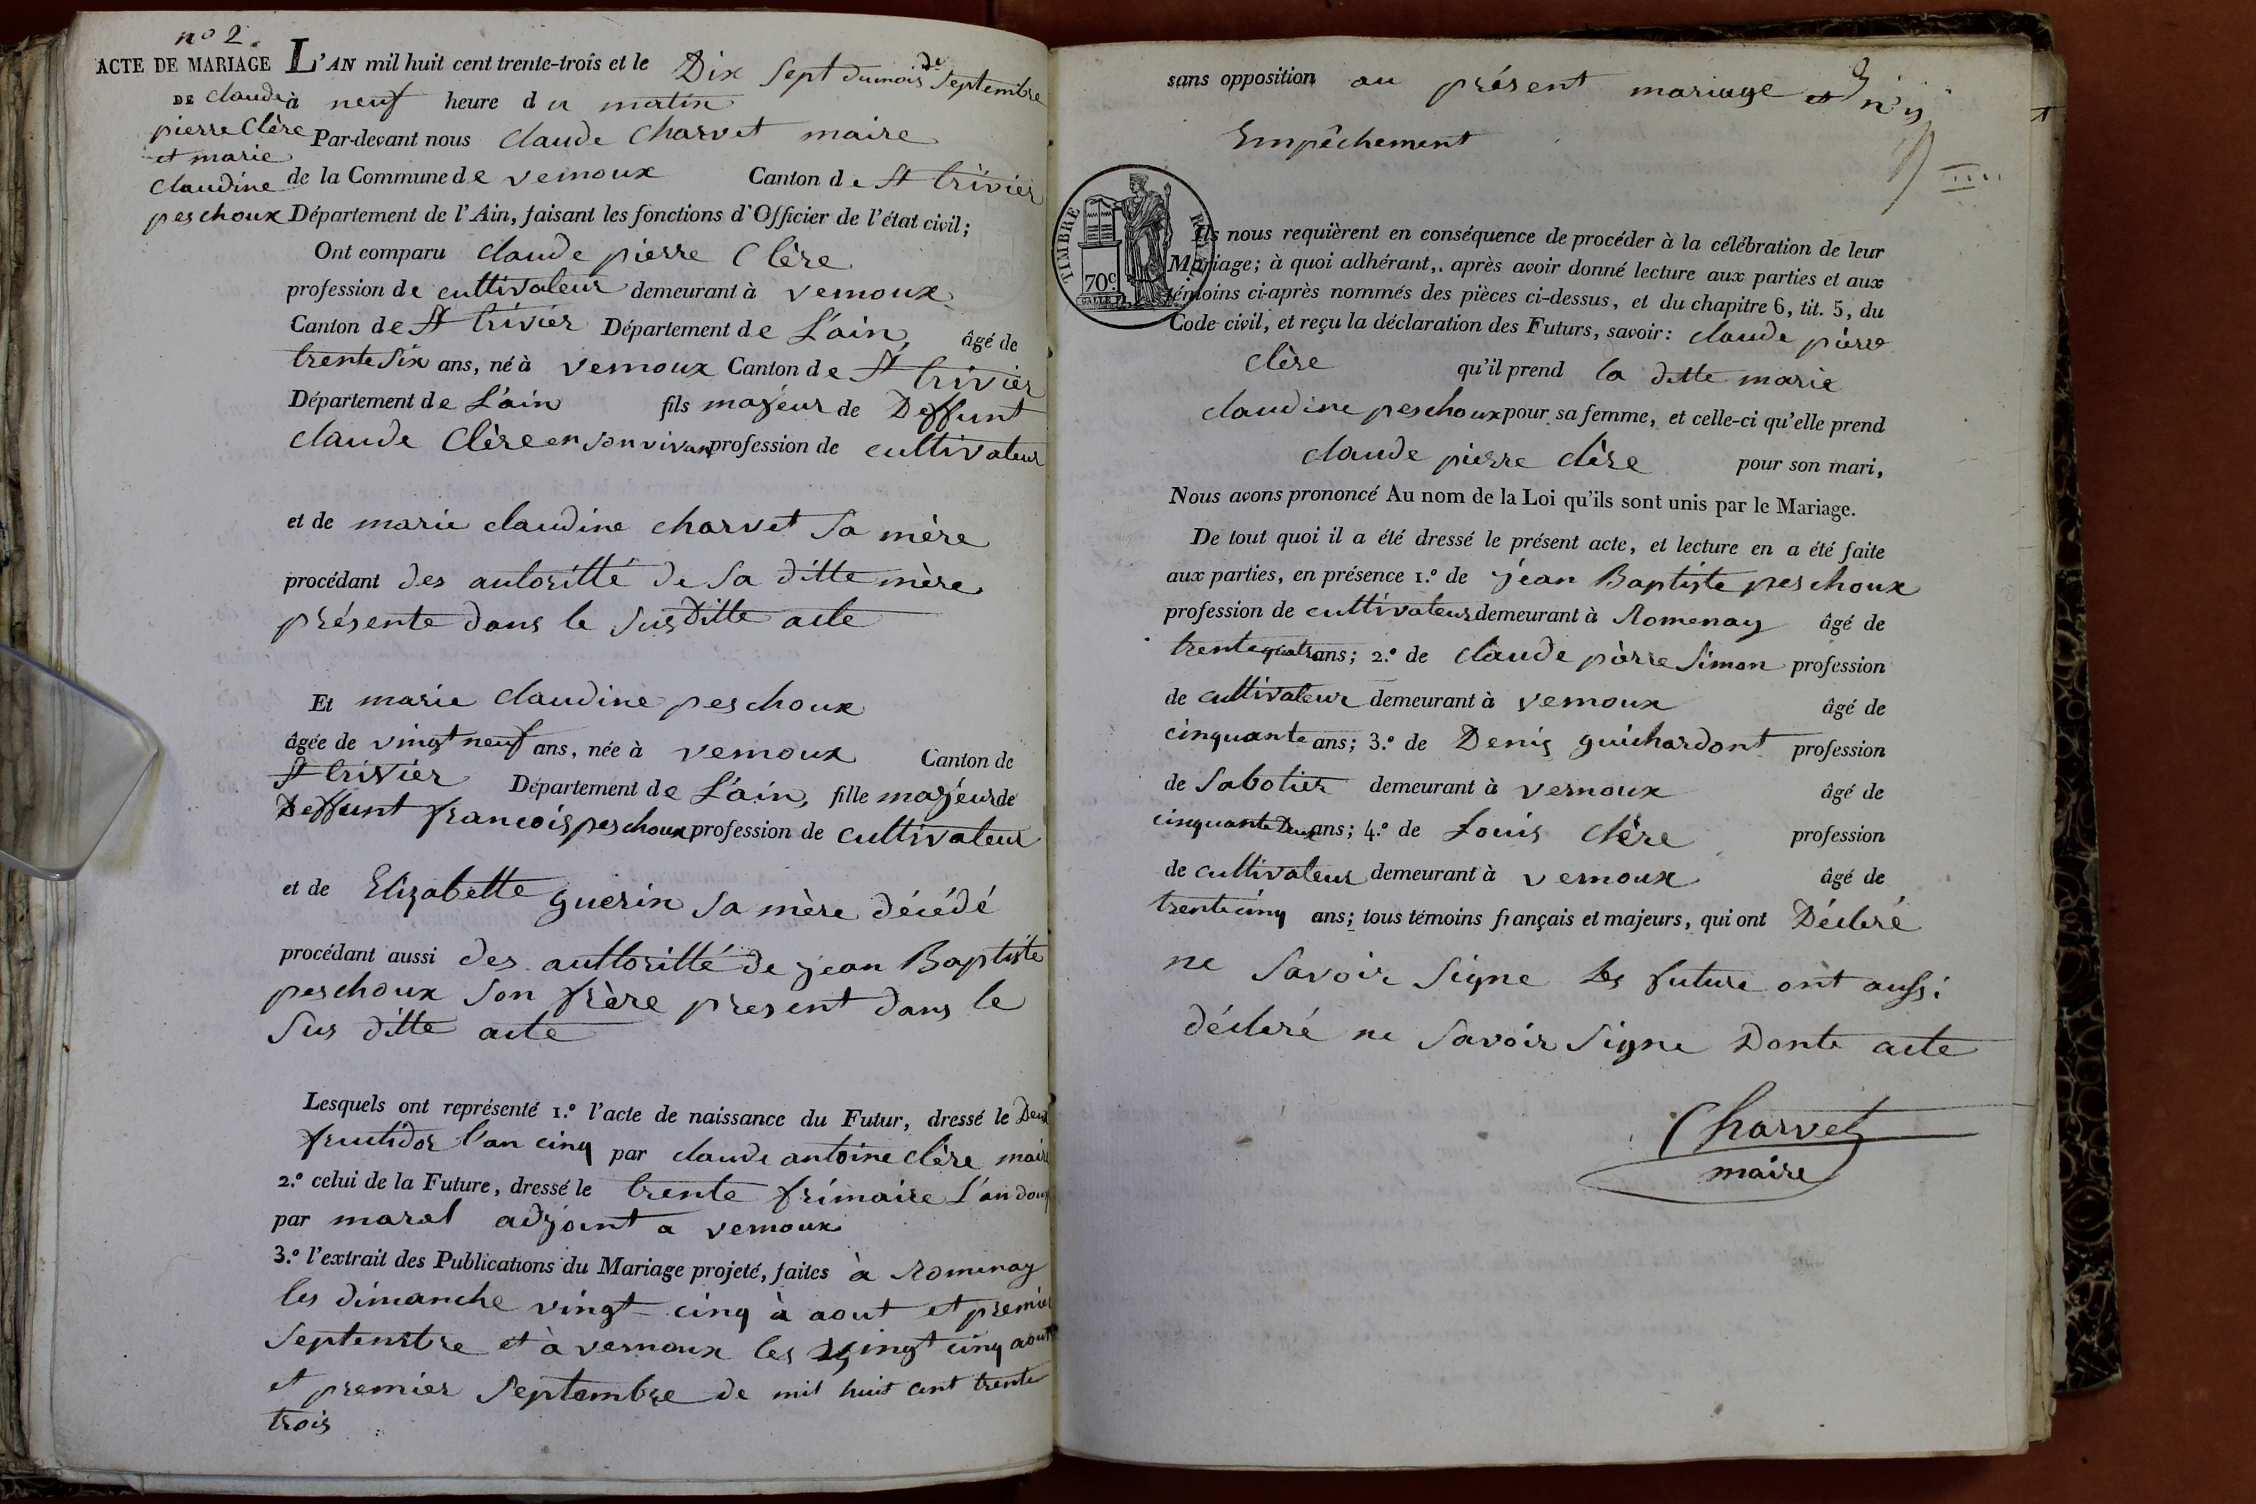 n° 2.
ACTE DE MARIAGE L'AN mil huit cent trente-trois et le Dix Sept du mois de Septembre
DE claude à neuf heure du matin
pierre Clère Par-devant nous claude Charvet maire
et marie
claudine de la Commune de vernoux Canton de St trivier
peschoux Département de l'Ain, faisant les fonctions d'Officier de l'état civil;
Ont comparu claude pierre Clère
profession de cultivateur demeurant à vernoux
Canton de St trivier Département de L'ain, âgé de
trente Six ans, né à vernoux Canton de St trivier
Département de L'ain fils majeur de Deffunt
claude Clère en son vivan profession de cultivateur
et de marie claudine charvet Sa mère
procédant des autoritté de Sa ditte mère
présente dans le Susditte acte
Et marie claudine peschoux
âgée de vingt neuf ans, née à vernoux Canton de
St trivier Département de L'ain, fille majeur de
Deffunt francois peschoux profession de cultivateur
et de Elizabette guerin Sa mère décédé
procédant aussi des auttoritté de jean Baptiste
peschoux Son frère present dans le
Sus ditte acte
Lesquels ont représenté 1.° l'acte de naissance du Futur, dressé le Deux
fructidor l'an cinq par claude antoine clère maire
2.° celui de la Future, dressé le trente frimaire L'an douze
par maral adjoint a vernoux
3.° l'extrait des Publications du Mariage projeté, faites à Romenay
les dimanche vingt cinq à aout et premier
Septembre et à vernoux les vingt cinq aout
et premier Septembre de mil huit cent trente
trois
sans opposition au présent mariage et n'y
Empêchement
TIMBRE
70c
Ils nous requièrent en conséquence de procéder à la célébration de leur
Mariage; à quoi adhérant,. après avoir donné lecture aux parties et aux
témoins ci-après nommés des pièces ci-dessus, et du chapitre 6, tit. 5, du
Code civil, et reçu la déclaration des Futurs, savoir: claude pierre
clère qu'il prend la ditte marie
claudine peschoux pour sa femme, et celle-ci qu'elle prend
claude pierre clère pour son mari,
Nous avons prononcé Au nom de la Loi qu'ils sont unis par le Mariage.
De tout quoi il a été dressé le présent acte, et lecture en a été faite
aux parties, en présence 1.° de jean Baptiste peschoux
profession de cultivateur demeurant à Romenay âgé de
trente quatre ans; 2.° de claude pierre Simon profession
de cultivateur demeurant à vernoux âgé de
cinquante ans; 3.° de Denis guichardont profession
de Sabotier demeurant à vernoux âgé de
cinquante Deux ans; 4.° de Louis Clère profession
de cultivateur demeurant à vernoux âgé de
trente cinq ans; tous témoins français et majeurs, qui ont Décleré
ne Savoir Signe les future ont aussi
décleré ne Savoir Signe Donte acte
Charvet
maire